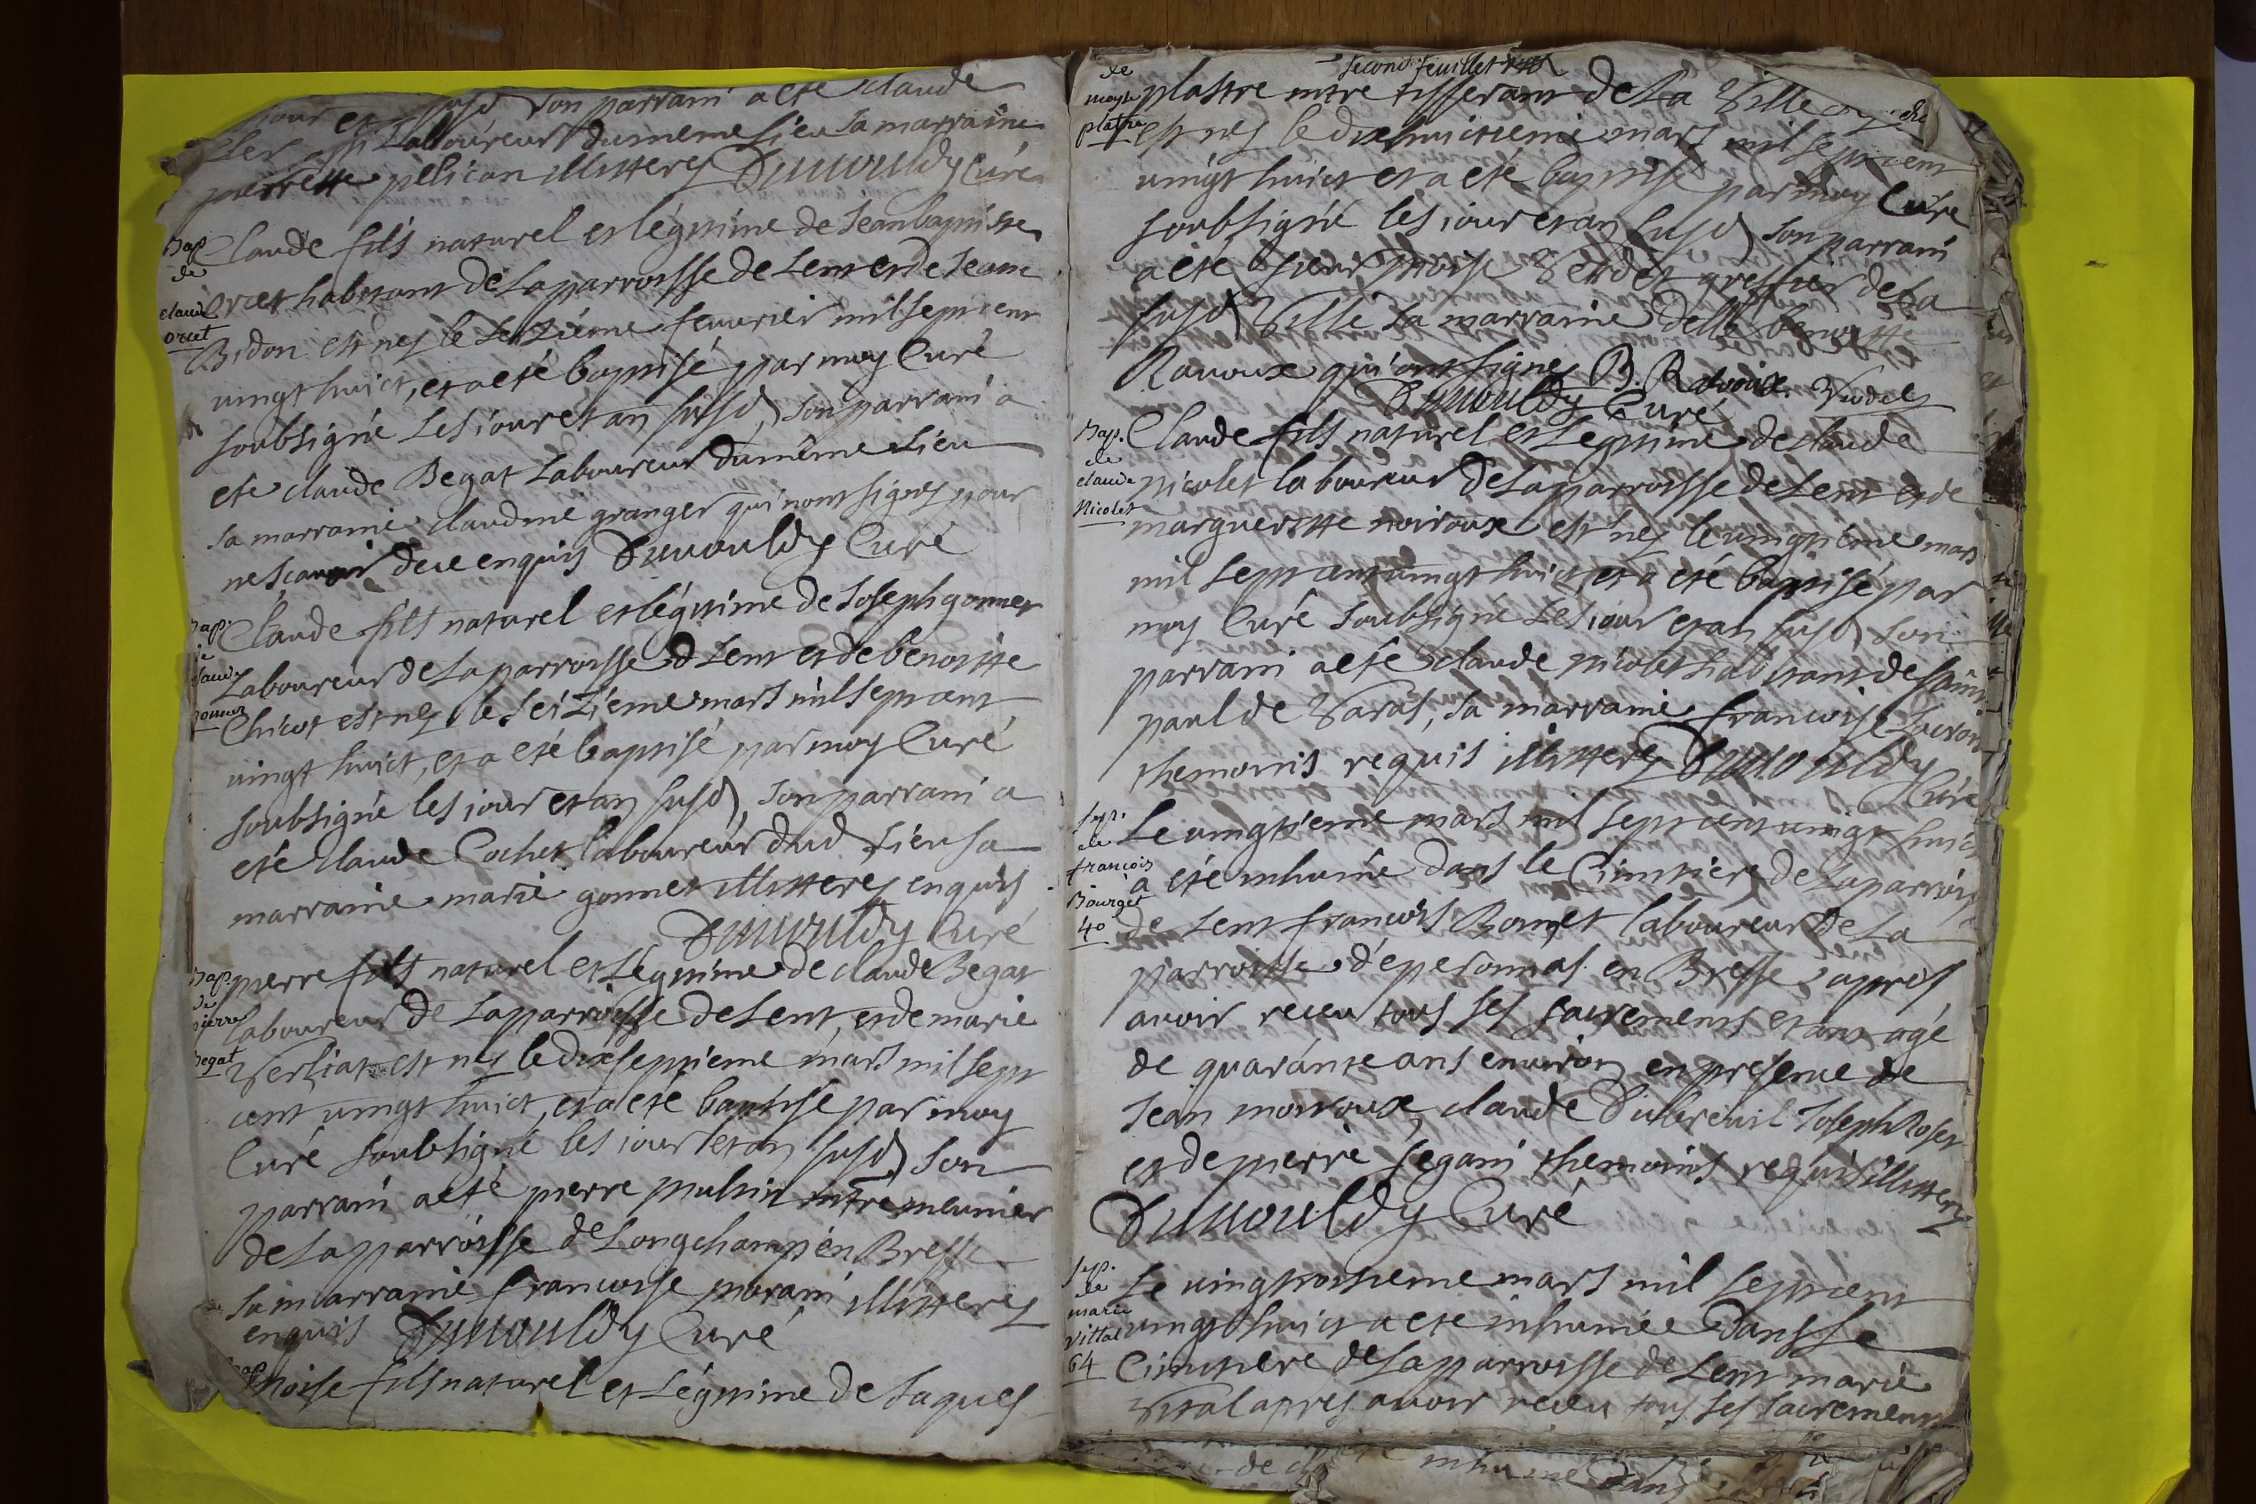 jour et susd son parrain a ete claude
laboureur du meme lieu sa marraine
pierrette pelican illitterez Dunouldy Curé
Bap
de
claude
orcet
Claude fils naturel et légitime de Jean baptiste
orcet habitant de la parroisse de Lent et de Jeane
Bidon est nez le seizième feuurier mil sept cent
uingt huict, et a eté baptisé par moy Curé
soubsigné les jour et an susd, son parrain a
ete claude Begat Laboureur du même Lieu
sa marraine claudine granger qui n'ont signez pour
ne scauoir de ce enquis Dunouldy Curé
Bap.
de
claude
gonnet
Claude fils naturel et légitime de Joseph gonnet
Laboureur de La parroisse d Lent et de benoitte
Chicot est nez le seizième mars mil sept cent
uingt huict, et a eté baptisé par moy Curé
soubsigné les jour et an susd, son parrain a
eté claude Cochet laboureur dud Lieu sa
marraine marie gonnet illitterez enquis
Dunouldy Curé
Bap.
de
pierre
Begat
pierre fils naturel et Légitime de claude Begat
laboureur de La parroisse de Lent, et de marie
Verliat est nez le dixseptieme mars mil sept
cent uingt huict, et a eté baptisé par moy
Curé soubsigné les jour et an susd, son
parrain a eté pierre pulsin mtre meunier
de La parroisse de Longchamp en Bresse
sa marraine francoise morain illitterez
enquis Dunouldy Curé
Bap
moise fils naturel et Légitime de Jaques
second feuillet
de
moyse
platre
plastre mtre tisserant de La Ville
est nez le dixhuictieme mars mil sept cent
uingt huict et a eté baptisé par moy Curé
soubsigné les jour et an susd, son parrain
a eté sieur moise Verdet greffier de La
susd Ville sa marraine delle benoitte
Rauoux qui ont signez B. Ravoux
Dunouldy Curé
Bap.
de
claude
Nicolet
Claude fils naturel et Legitime de claude
nicolet laboureur de La parroisse de Lent et de
margueritte noiroux est nez le uingtième mars
mil sept cent uingt huict et a eté baptisé par
moy Curé soubsigné Les jour et an susd, son
parrain a eté claude nicolet habitant de saint
paul de Varas, sa marraine francoise
themoins requis illitterez Dunouldy
Curé
sep.
de
francois
Bourget
40
Le uingtieme mars mil sept cent uingt huict
a eté inhumé dans le Cimitiere de La parroisse
de Lent francois Borget laboureur de La
parroisse d'épesonnas en Bresse apres
auoir receu tous ses sacrements etant agé
de quarante ans enuiron en presence de
Jean noiroux, claude Dubreuil Joseph Roset
et de pierre segain themoins requis illitterez
Dunouldy Curé
sep.
de
marie
Vittal
64
Le uingtroisieme mars mil sept cent
uingt huict a eté inhumée dans Le
Cimitiere de La parroisse de Lent marie
Vital apres auoir receu tous ses sacrements
inhumé dans